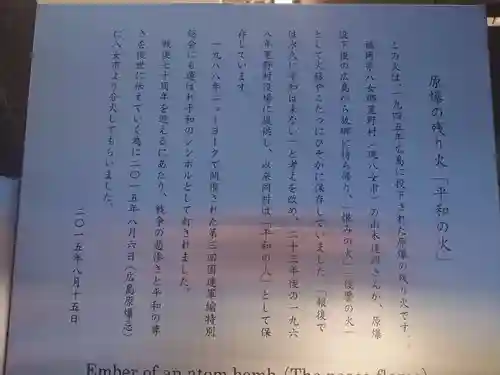 原爆の残り火「平和の火」
この火は、一九四五年広島に投下された原爆の残り火です。
福岡県八女郡星野村（現八女市）の山本達雄さんが、原爆
投下後の広島から故郷に持ち帰り、「恨みの火」「復讐の火」
として火鉢やこたつにひそかに保存していました。「報復で
は永久に平和は来ない」と考えを改め、二十三年後の一九六
八年星野村役場に提供し、以来同村は「平和の火」として保
存しています。
一九八八年ニューヨークで開催された第三回国連軍縮特別
総会にも運ばれ平和のシンボルとして灯されました。
戦後七十周年を迎えるにあたり、戦争の悲惨さと平和の尊
さを後世に伝えていく為に二〇一五年八月六日（広島原爆忌）
に八女市より分火してもらいました。
二〇一五年八月十五日
Ember of an atom bomb (The peace flame)